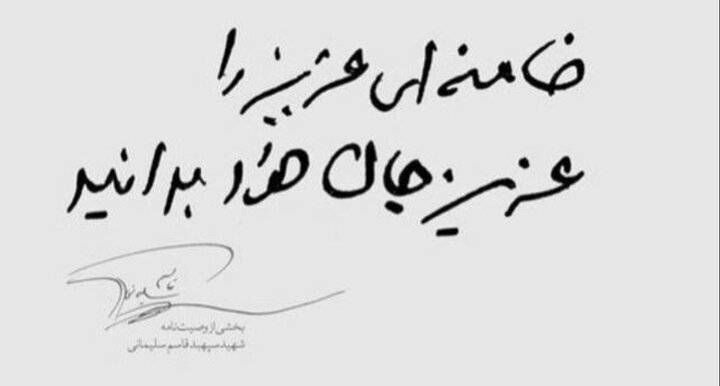 خامنه‌ای عزیز را
عزیز جان خود بدانید
قاسم سلیمانی
بخشی از وصیت‌نامه
شهید سپهبد قاسم سلیمانی